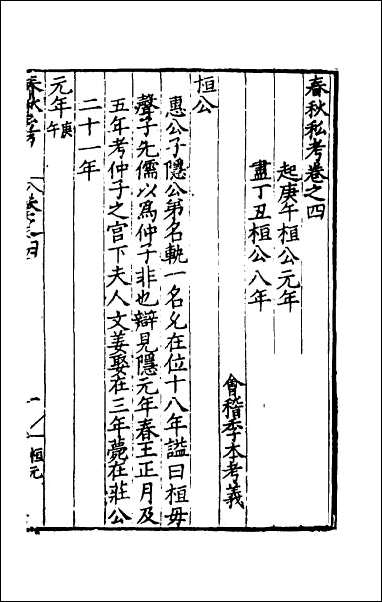 春秋私考卷之四
起庚午桓公元年
盡丁丑桓公八年
會稽季本考義
桓公
惠公子隱公弟名軌一名允在位十八年謚曰桓毋
聲子先儒以爲仲子非也辯見隱元年春王正月及
五年考仲子之宫下夫人文姜娶在三年薨在莊公
二十一年
元年庚午
春秋私考
卷之四
一
桓元